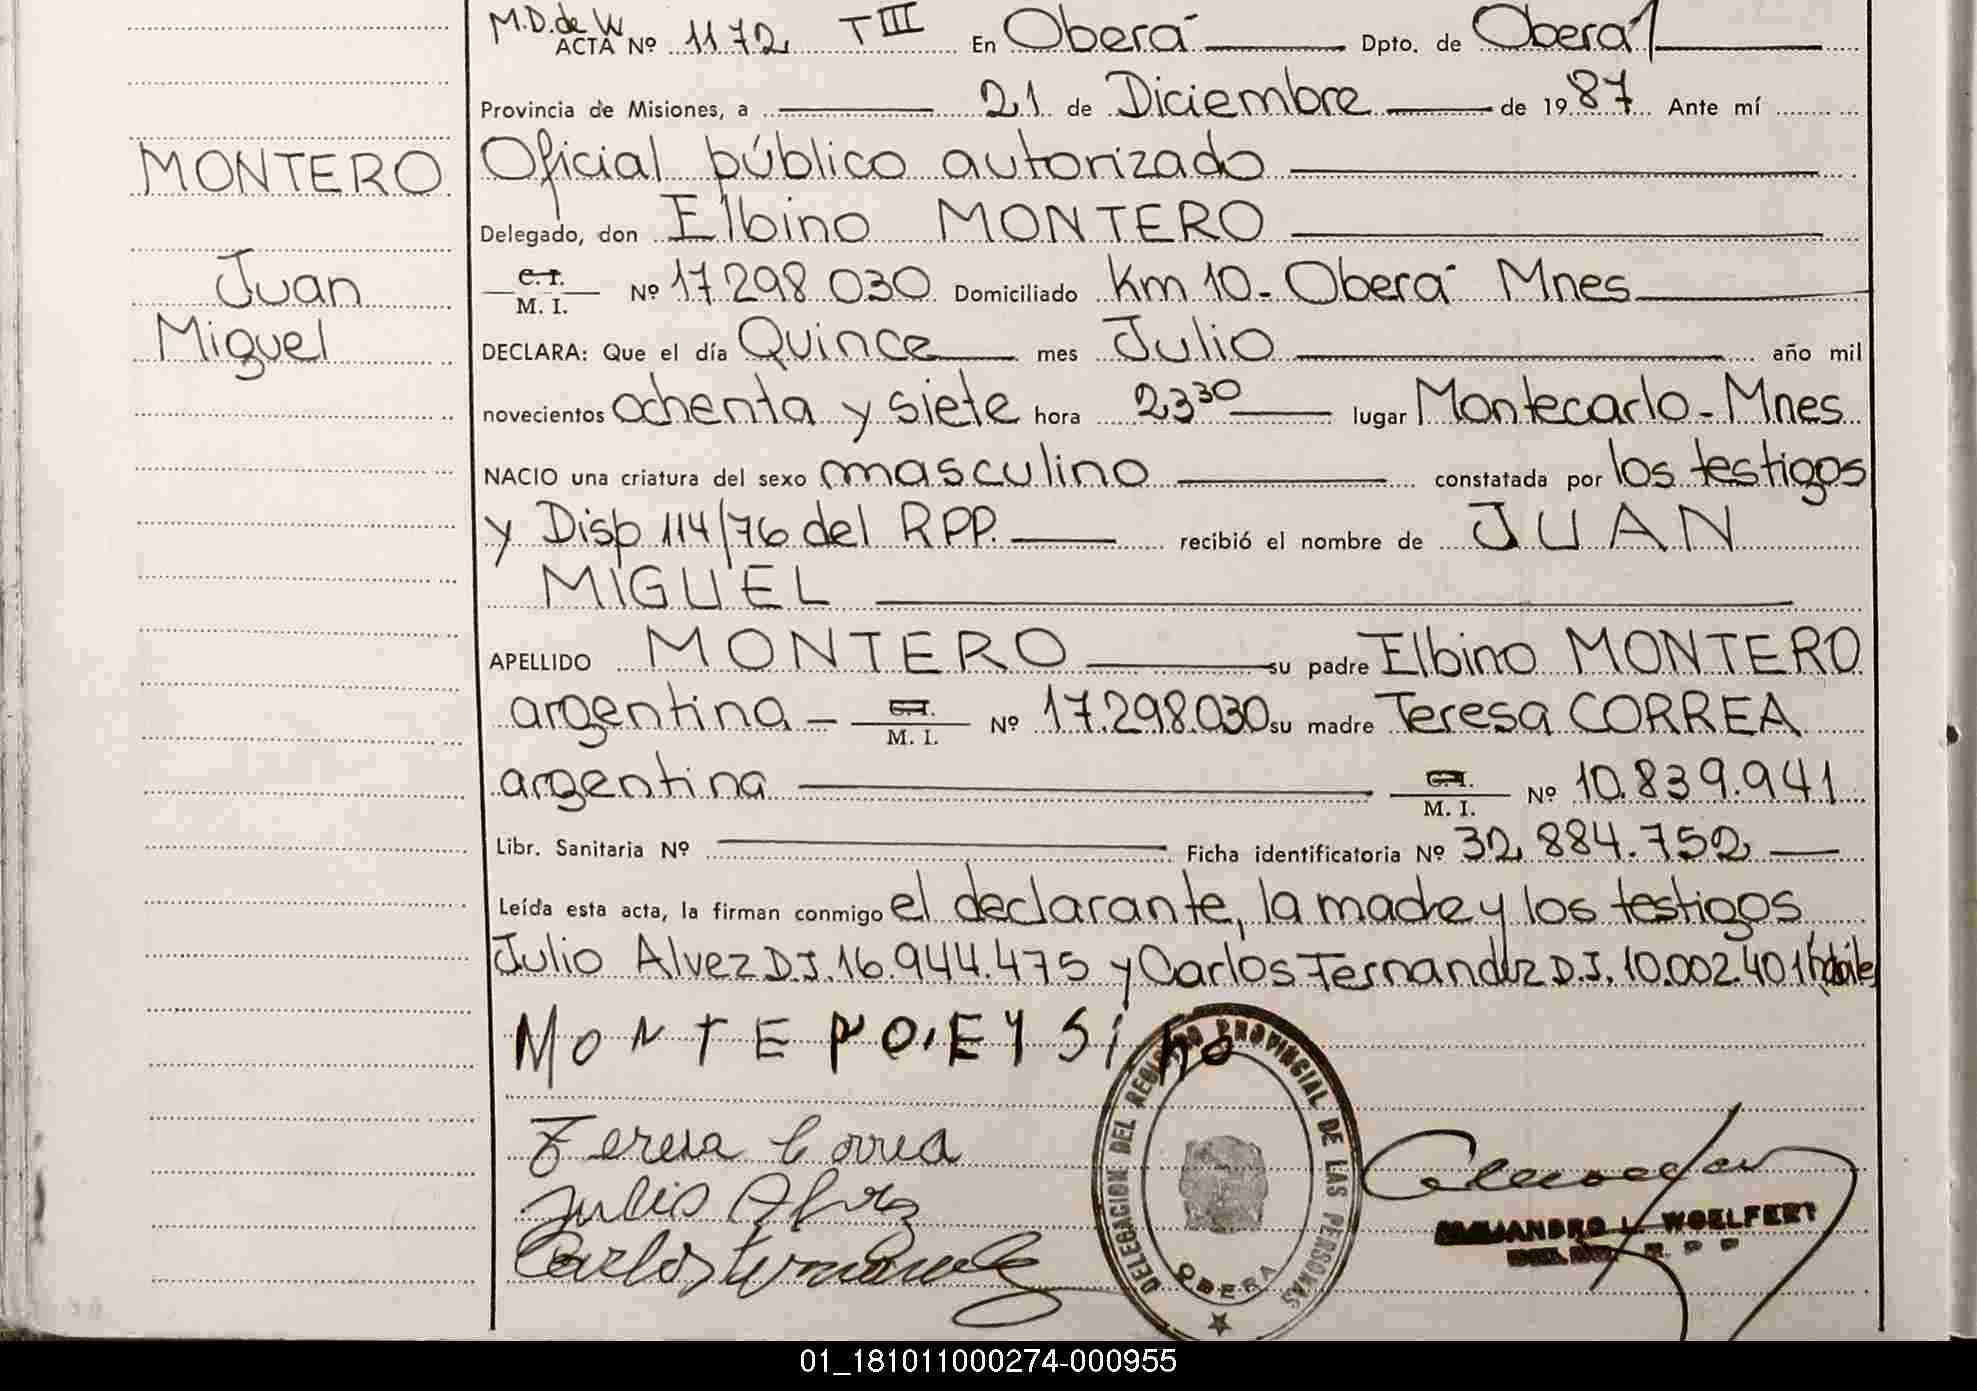 M.D.de W
ACTA Nº 1172 T III En Oberá Dpto. de Oberá
Provincia de Misiones, a 21 de Diciembre de 1987 Ante mí
MONTERO Oficial público autorizado
Delegado, don Elbino MONTERO
Juan C.I. M. I. Nº 17.298.030 Domiciliado Km 10 - Oberá Mnes
Miguel DECLARA: Que el día Quince mes Julio año mil
novecientos ochenta y siete hora 23 30 lugar Montecarlo - Mnes
NACIO una criatura del sexo masculino constatada por los testigos
y Disp 114/76 del RPP. recibió el nombre de JUAN
MIGUEL
APELLIDO MONTERO su padre Elbino MONTERO
argentina C.I. M. I. Nº 17.298.030 su madre Teresa CORREA
argentina C.I. M. I. Nº 10.839.941
Libr. Sanitaria Nº Ficha identificatoria Nº 32.884.752
Leída esta acta, la firman conmigo el declarante, la madre y los testigos
Julio Alvez D.I. 16.944.475 y Carlos Fernandez D.I. 10.002.401
MONTERO
Teresa Correa
Julio Alvez
Carlos Fernandez
DELEGACION DEL REGISTRO PROVINCIAL DE LAS PERSONAS
OBERA
ALEJANDRO L. WOELFERT
01_181011000274-000955